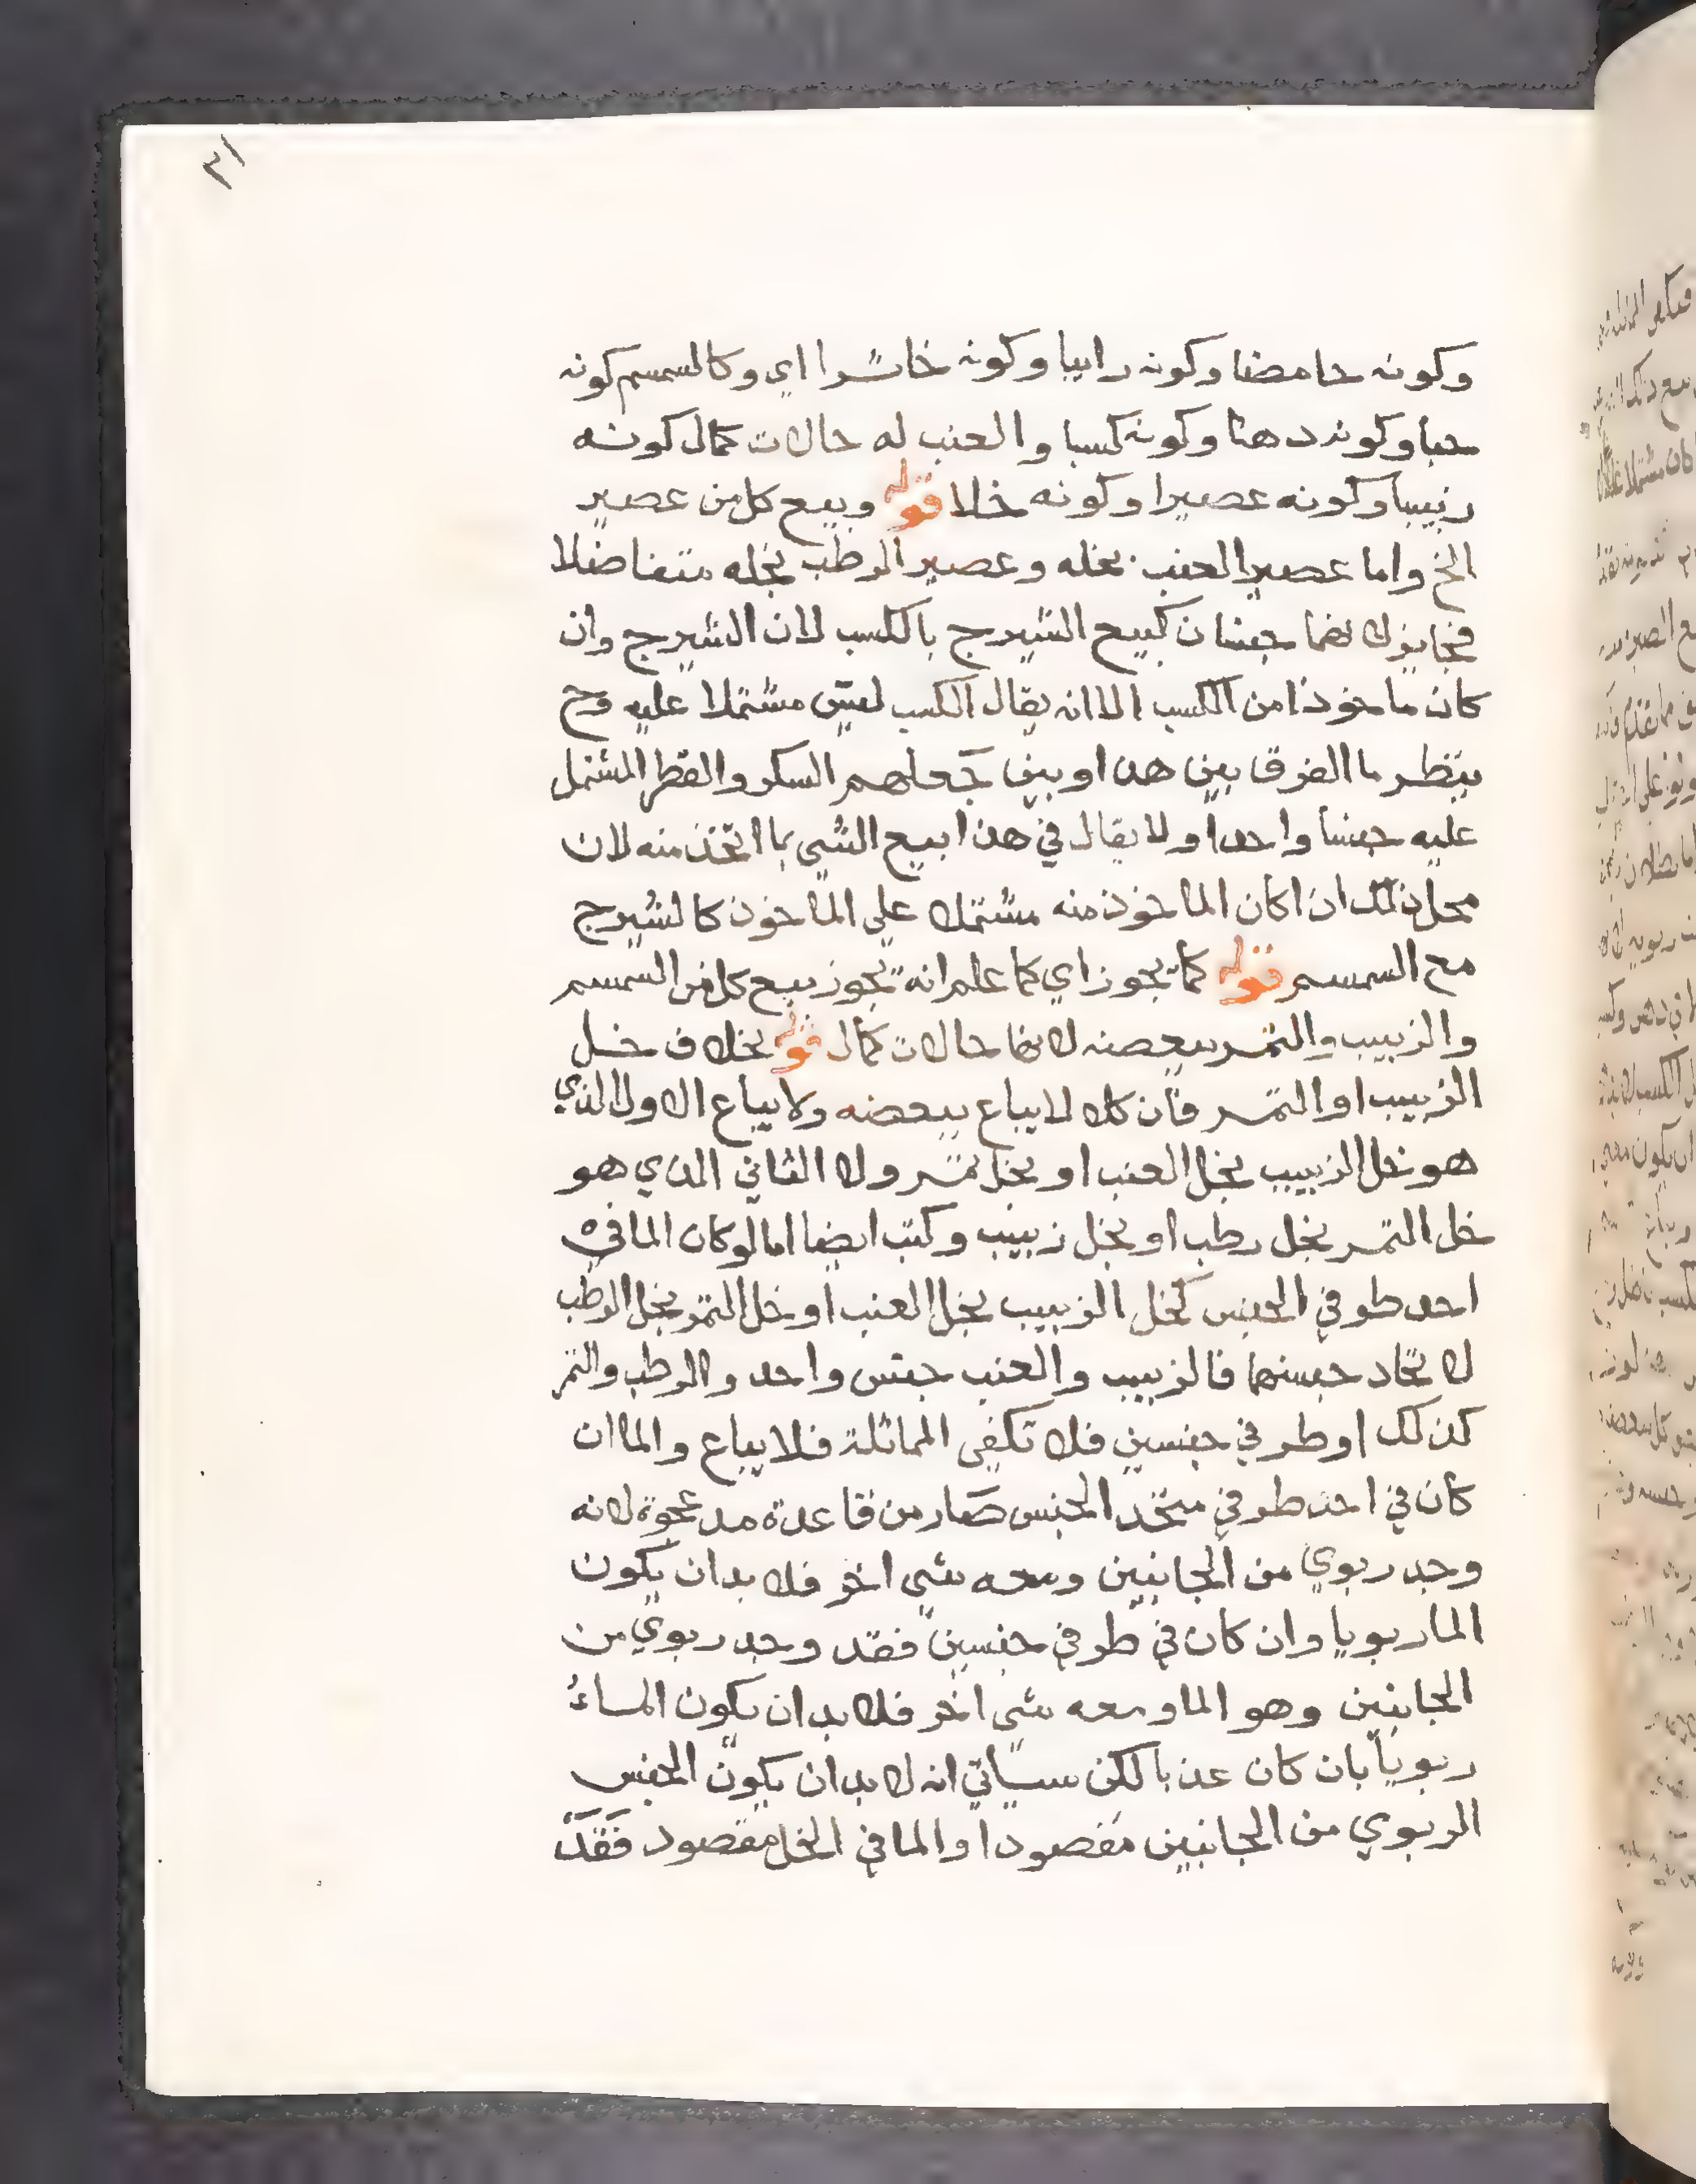 ٣١
وكونه حامضا وكونه رايبا وكونه خاثرا اي وكالسمسم كونه
حبا وكونه دهنا وكونه كسبا والعنب له حالات كمال كونه
زبيبا وكونه عصيرا وكونه خلا قوله وبيع كل من عصير
الخ واما عصير العنب بخله وعصير الرطب بخله متفاضلا
فجايز لانهما جنسان كبيع الشيرج بالكسب لان الشيرج وان
كان ماخوذا من الكسب الا انه يقال الكسب ليس مشتملا عليه وح
ينظر ما الفرق بين هذا وبين جعلهم السكر والقطر المشتمل
عليه جنسا واحدا ولا يقال في هذا بيع الشي بما اتخذ منه لان
محل ذلك اذا كان الماخوذ منه مشتملا علي الماخوذ كالشيرج
مع السمسم قوله كما يجوز اي كما علم انه يجوز بيع كل من السمسم
والزبيب والتمر ببعضه لانها حالات كمال قوله بخلاف خل
الزبيب او التمر فان كلا لا يباع ببعضه ولا يباع الاول الذي
هو خل الزبيب بخل العنب او بخل تمر ولا الثاني الذي هو
خل التمر بخل رطب او بخل زبيب وكتب ايضا اما لو كان الما في
احد طرفي الجنس كخل الزبيب بخل العنب او خل التمر بخل الرطب
لاتحاد جنسهما فالزبيب والعنب جنس واحد والرطب والتمر
كذلك او طرفي جنسين فلا تكفي المماثلة فلا يباع والما ان
كان في احد طرفي متحد الجنس صار من قاعدة مد عجوة لانه
وجد ربوي من الجانبين ومعه شي اخر فلا بد ان يكون
الما ربويا وان كان في طرفي جنسين فقد وجد ربوي من
الجانبين وهو الما ومعه شي اخر فلا بد ان يكون الماء
ربويا بان كان عذبا لكن سياتي انه لا بد ان يكون الجنس
الربوي من الجانبين مقصودا والما في الخل مقصود فقد